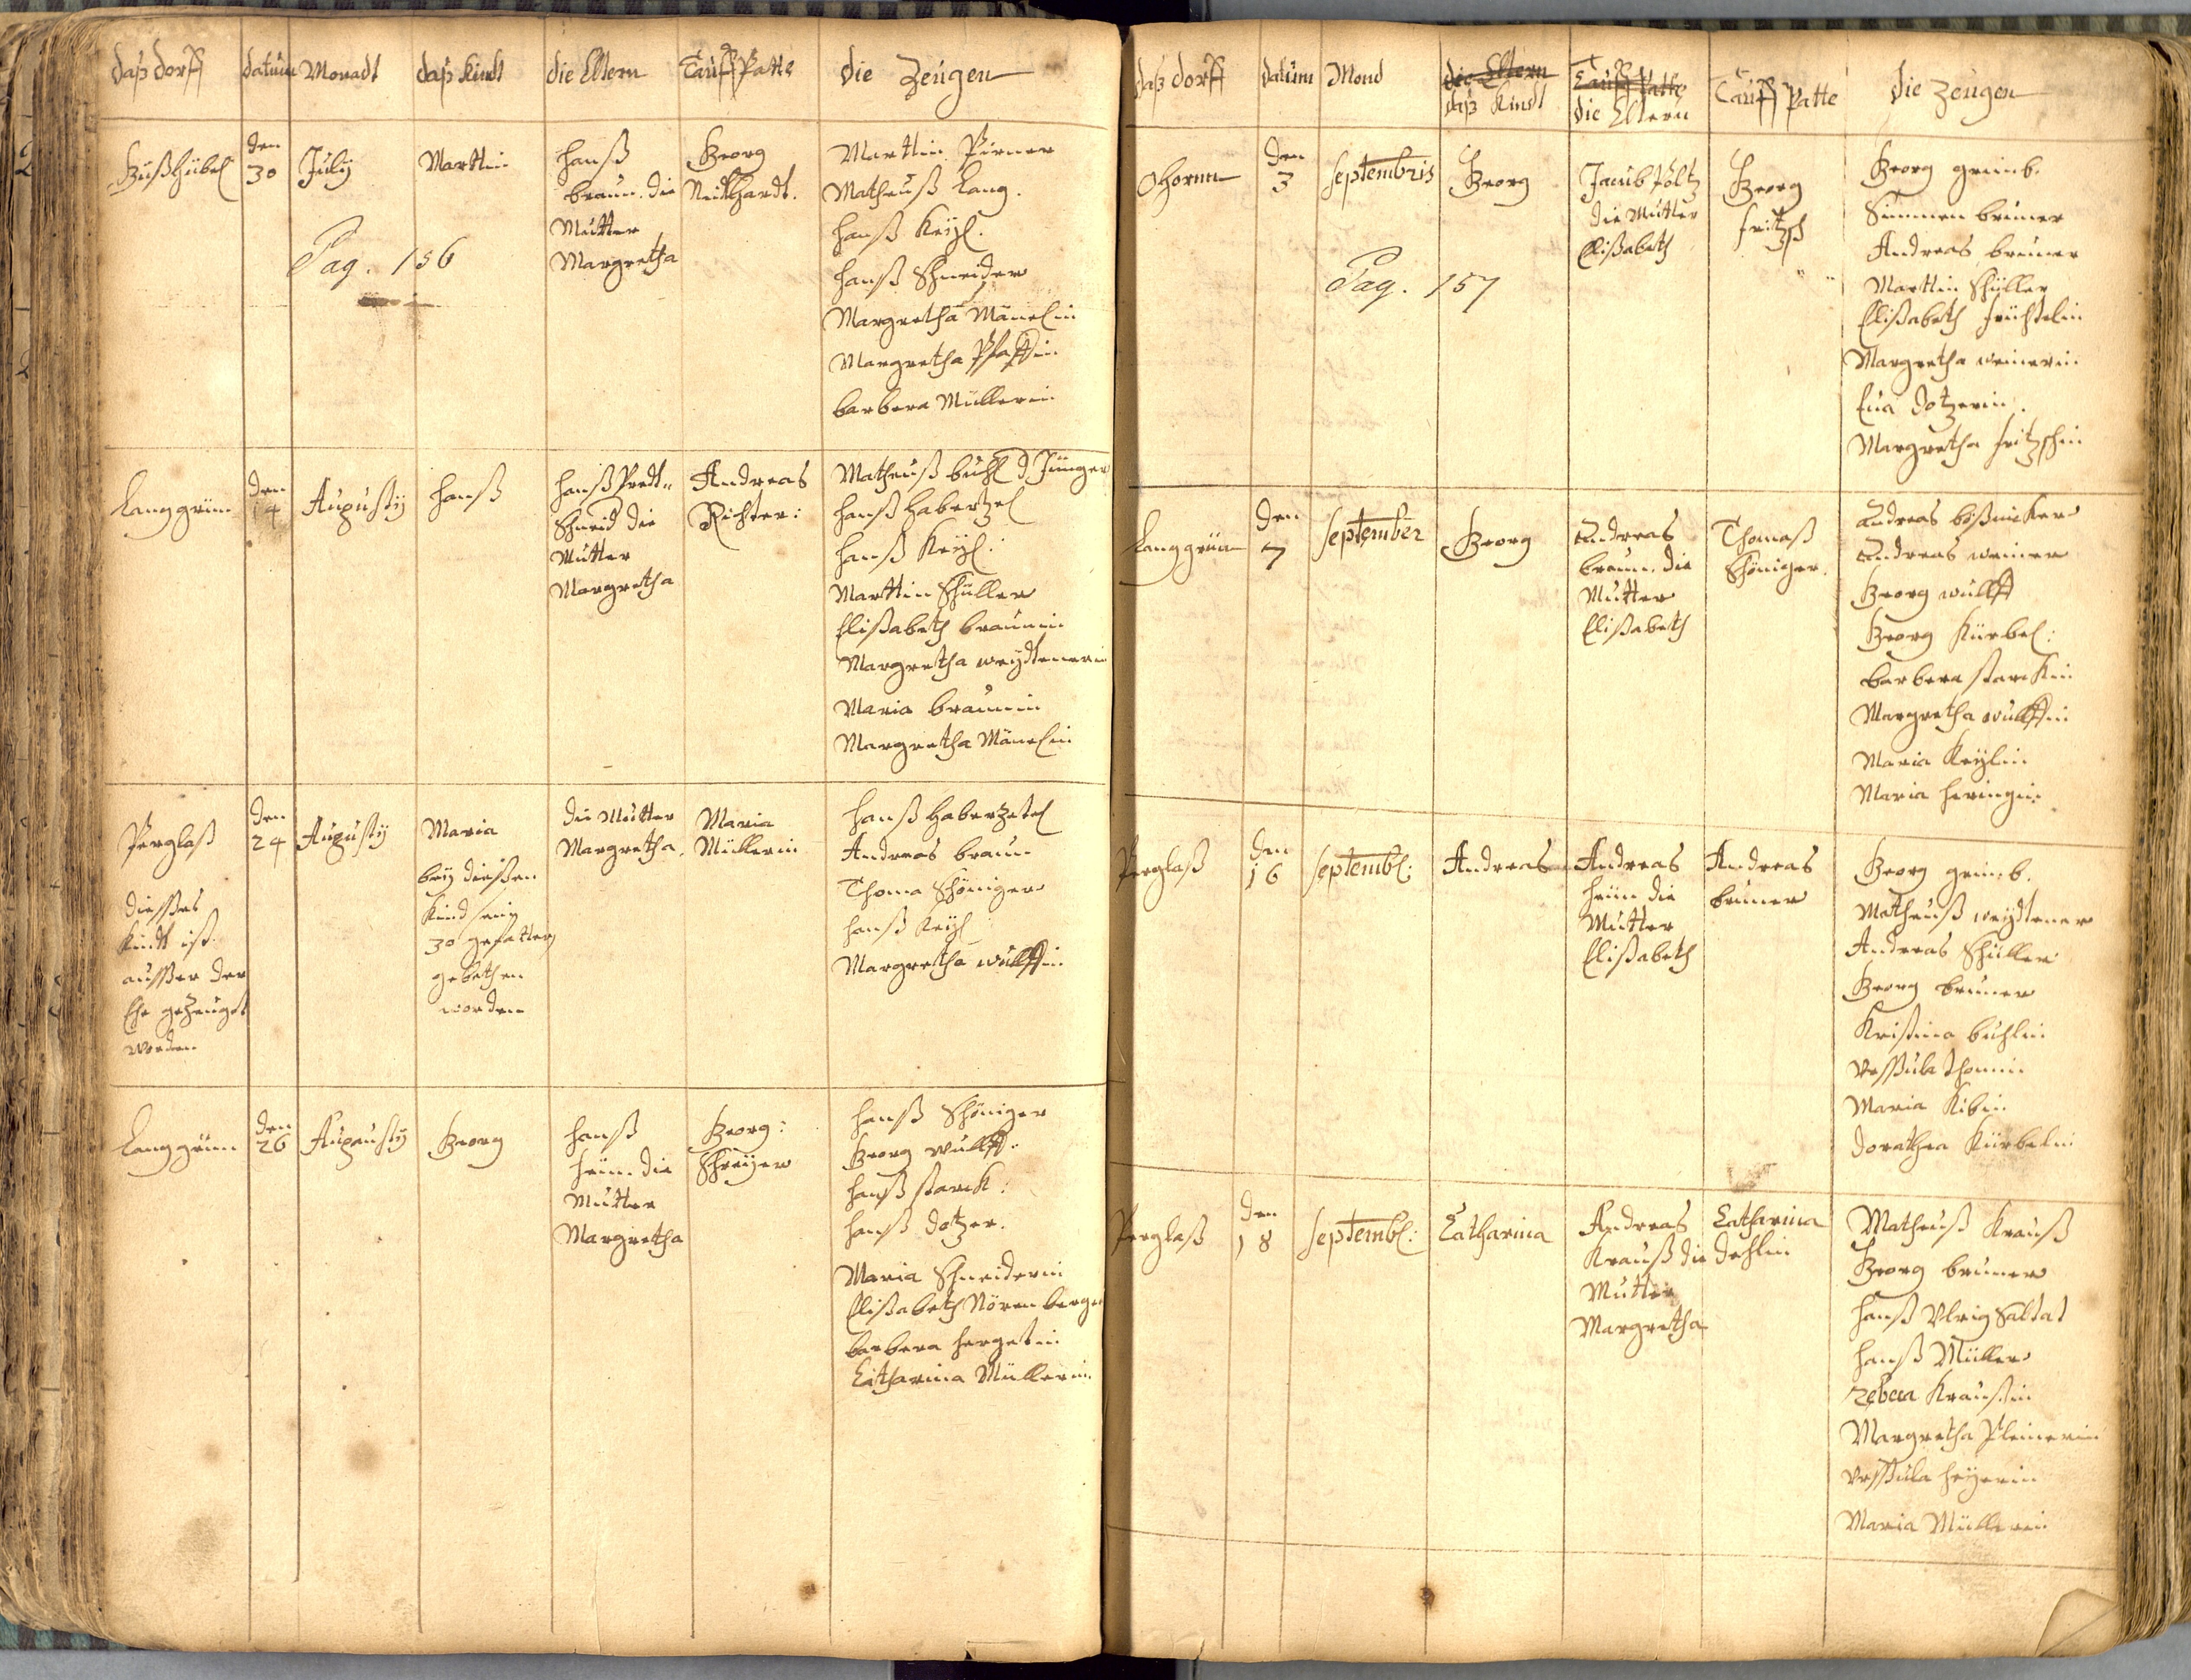 daß dorff datum Monadt daß Kindt die Eltern Tauff Patte die Zeugen
den
30 July Marttin
Pag. 156
hanß
braun. die
Mutter
Margretha
Georg
Neidthardt.
Marttin Pirner
Matheuß Lang.
hanß Keyl.
hanß Schneider
Margretha Mänelin
Margretha Pfaffin
barbera Müllerin
Langgrün
den
14
Augusty
hanß
hanß Prett-
Schneid die
Mutter
Margretha
Andreas
Richter:
Matheuß buhl d Jünger
hanß haberzel
hanß Keyl:
Marttin Schüller
Elisabeth braunin
Margretha weydtenerin
Maria braunin
Margretha Mänelin
Perglaß
diesses
Kindt ist
ausser der
Ehe gezeuget
worden
den
24
Augusty
Maria
bey diessen
Kind sein
30 gefatter
gebethen
worden
die Mutter
Margretha.
Maria
Müllerin
hanß haberzetel
Andreas braun
Thoma Schöniger
hanß Keyl
Margretha wulffin
Langgrün
den
26
Augusty
Georg
hanß
heün. die
Mutter
Margretha
Georg:
Schreyer
hanß Schöniger
Georg wulff.
hanß starck:
hanß dotzer.
Maria Schneiderin
Elisabeth Nörenberger
barbera hergetin
Catharina Müllerin.
daß dorff datum Mond die Eltern Tauff Patte Tauff Patte die Zeugen
daß Kindt die Eltern
Ohornn
den
3
Septembris
Pag. 157
Georg
Jacub Pöltz
die Mutter
Elisabeth
Georg
fritzsch
Georg grimb.
Simmen bruner
Andreas bruner
Marttin Schüller
Elisabeth
Margretha weinerin
Eua dotzerin.
Margretha fritzschin
Langgrün
den
7
September
Georg
Andreas
braun. die
Mutter
Elisabeth
Thomaß
Schöniger.
Andreas
Andreas weiner
Georg wulff
Georg Kürbel:
barbera starckin
Margretha wulffin
Maria Keylin
Maria heringin
Perglaß
den
16
Septembl:
Andreas
Andreas
heün die
Mutter
Elisabeth
Andreas
bruner
Georg grimb.
Matheuß weydtener
Andreas Schüller
Georg bruner
Kristina buhlin
Vrssula thomin
Maria Kibin
dorathea Kürbelin
Perglaß
den
18
Septembl:
Catharina
Andreas
Krauß die
Mutter
Margretha
Catharina
dehlin
Matheuß Krauß
Georg bruner
hanß Vlrig Saltat
hanß Müller
rebeca Kraußin
Margretha Pleinerin
Vrssula heyerin
Maria Müllerin